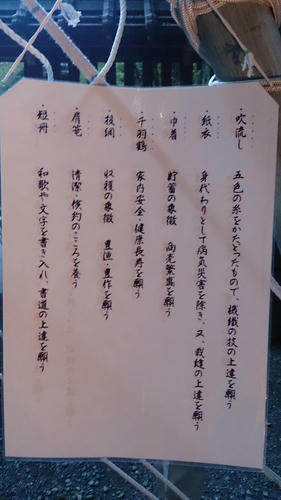 ・吹流し　五色の糸をかたどったもので、機織の技の上達を願う
・紙衣　身代わりとして病気災害を除き、又、裁縫の上達を願う
・巾着　貯蓄の象徴　商売繁盛を願う
・千羽鶴　家内安全・健康長寿を願う
・投網　収穫の象徴　豊漁・豊作を願う
・屑篭　清潔・倹約のこころを養う
・短冊　和歌や文字を書き入れ、書道の上達を願う